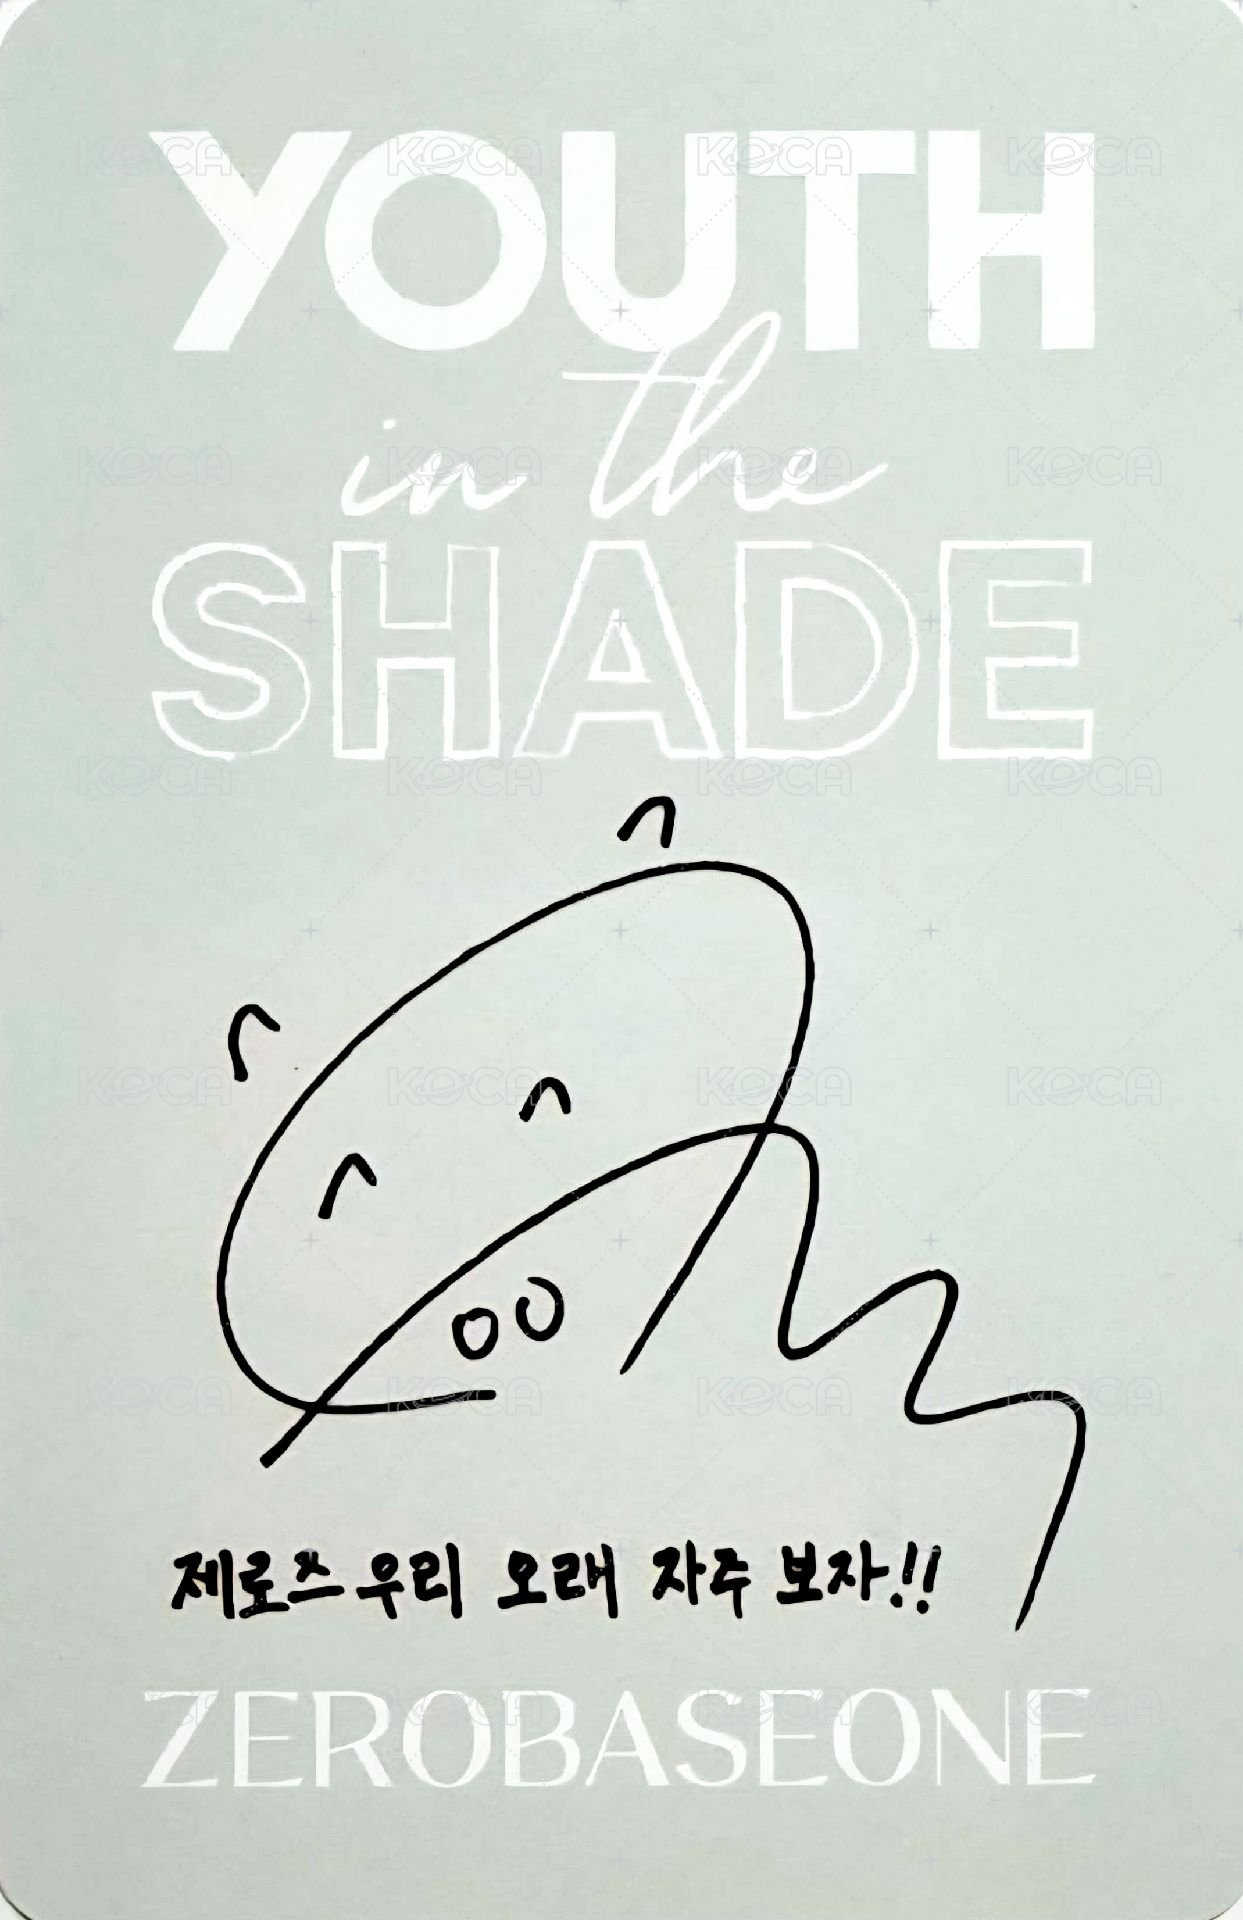 YOUTH
in the
SHADE
제로즈 우리 오래 자주 보자!!
ZEROBASEONE
KOCA